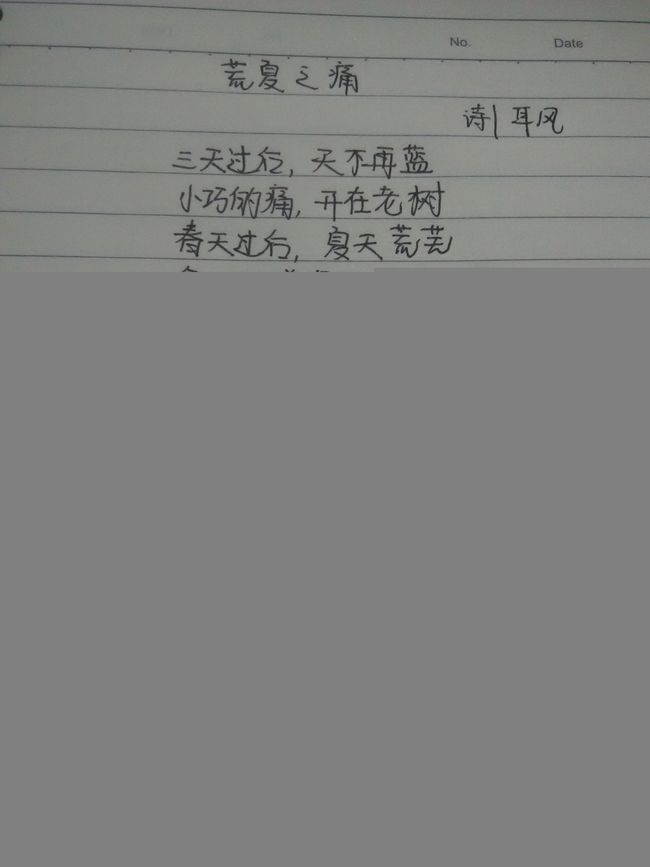 No. Date
荒夏之痛
诗|耳风
三天过后，天不再蓝
小巧的痛，开在老树
春天过后，夏天荒芜